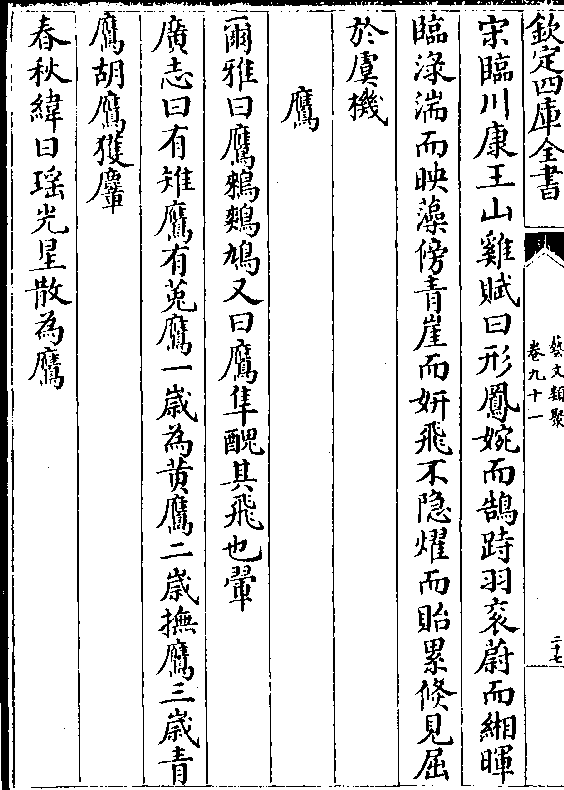 欽定四庫全書
藝文類聚
卷九十一
二十七
宋臨川康王山雞賦曰形鳳婉而鵠跱羽衮蔚而緗暉
臨淥湍而映藻傍青崖而妍飛不隐燿而貽累倏見屈
於虞機
鷹
爾雅曰鷹鶆鷞鳩又曰鷹隼醜其飛也翬
廣志曰有雉鷹有菟鷹一歲為黄鷹二歲撫鷹三歲青
鷹胡鷹獲麞
春秋緯曰瑶光星散為鷹